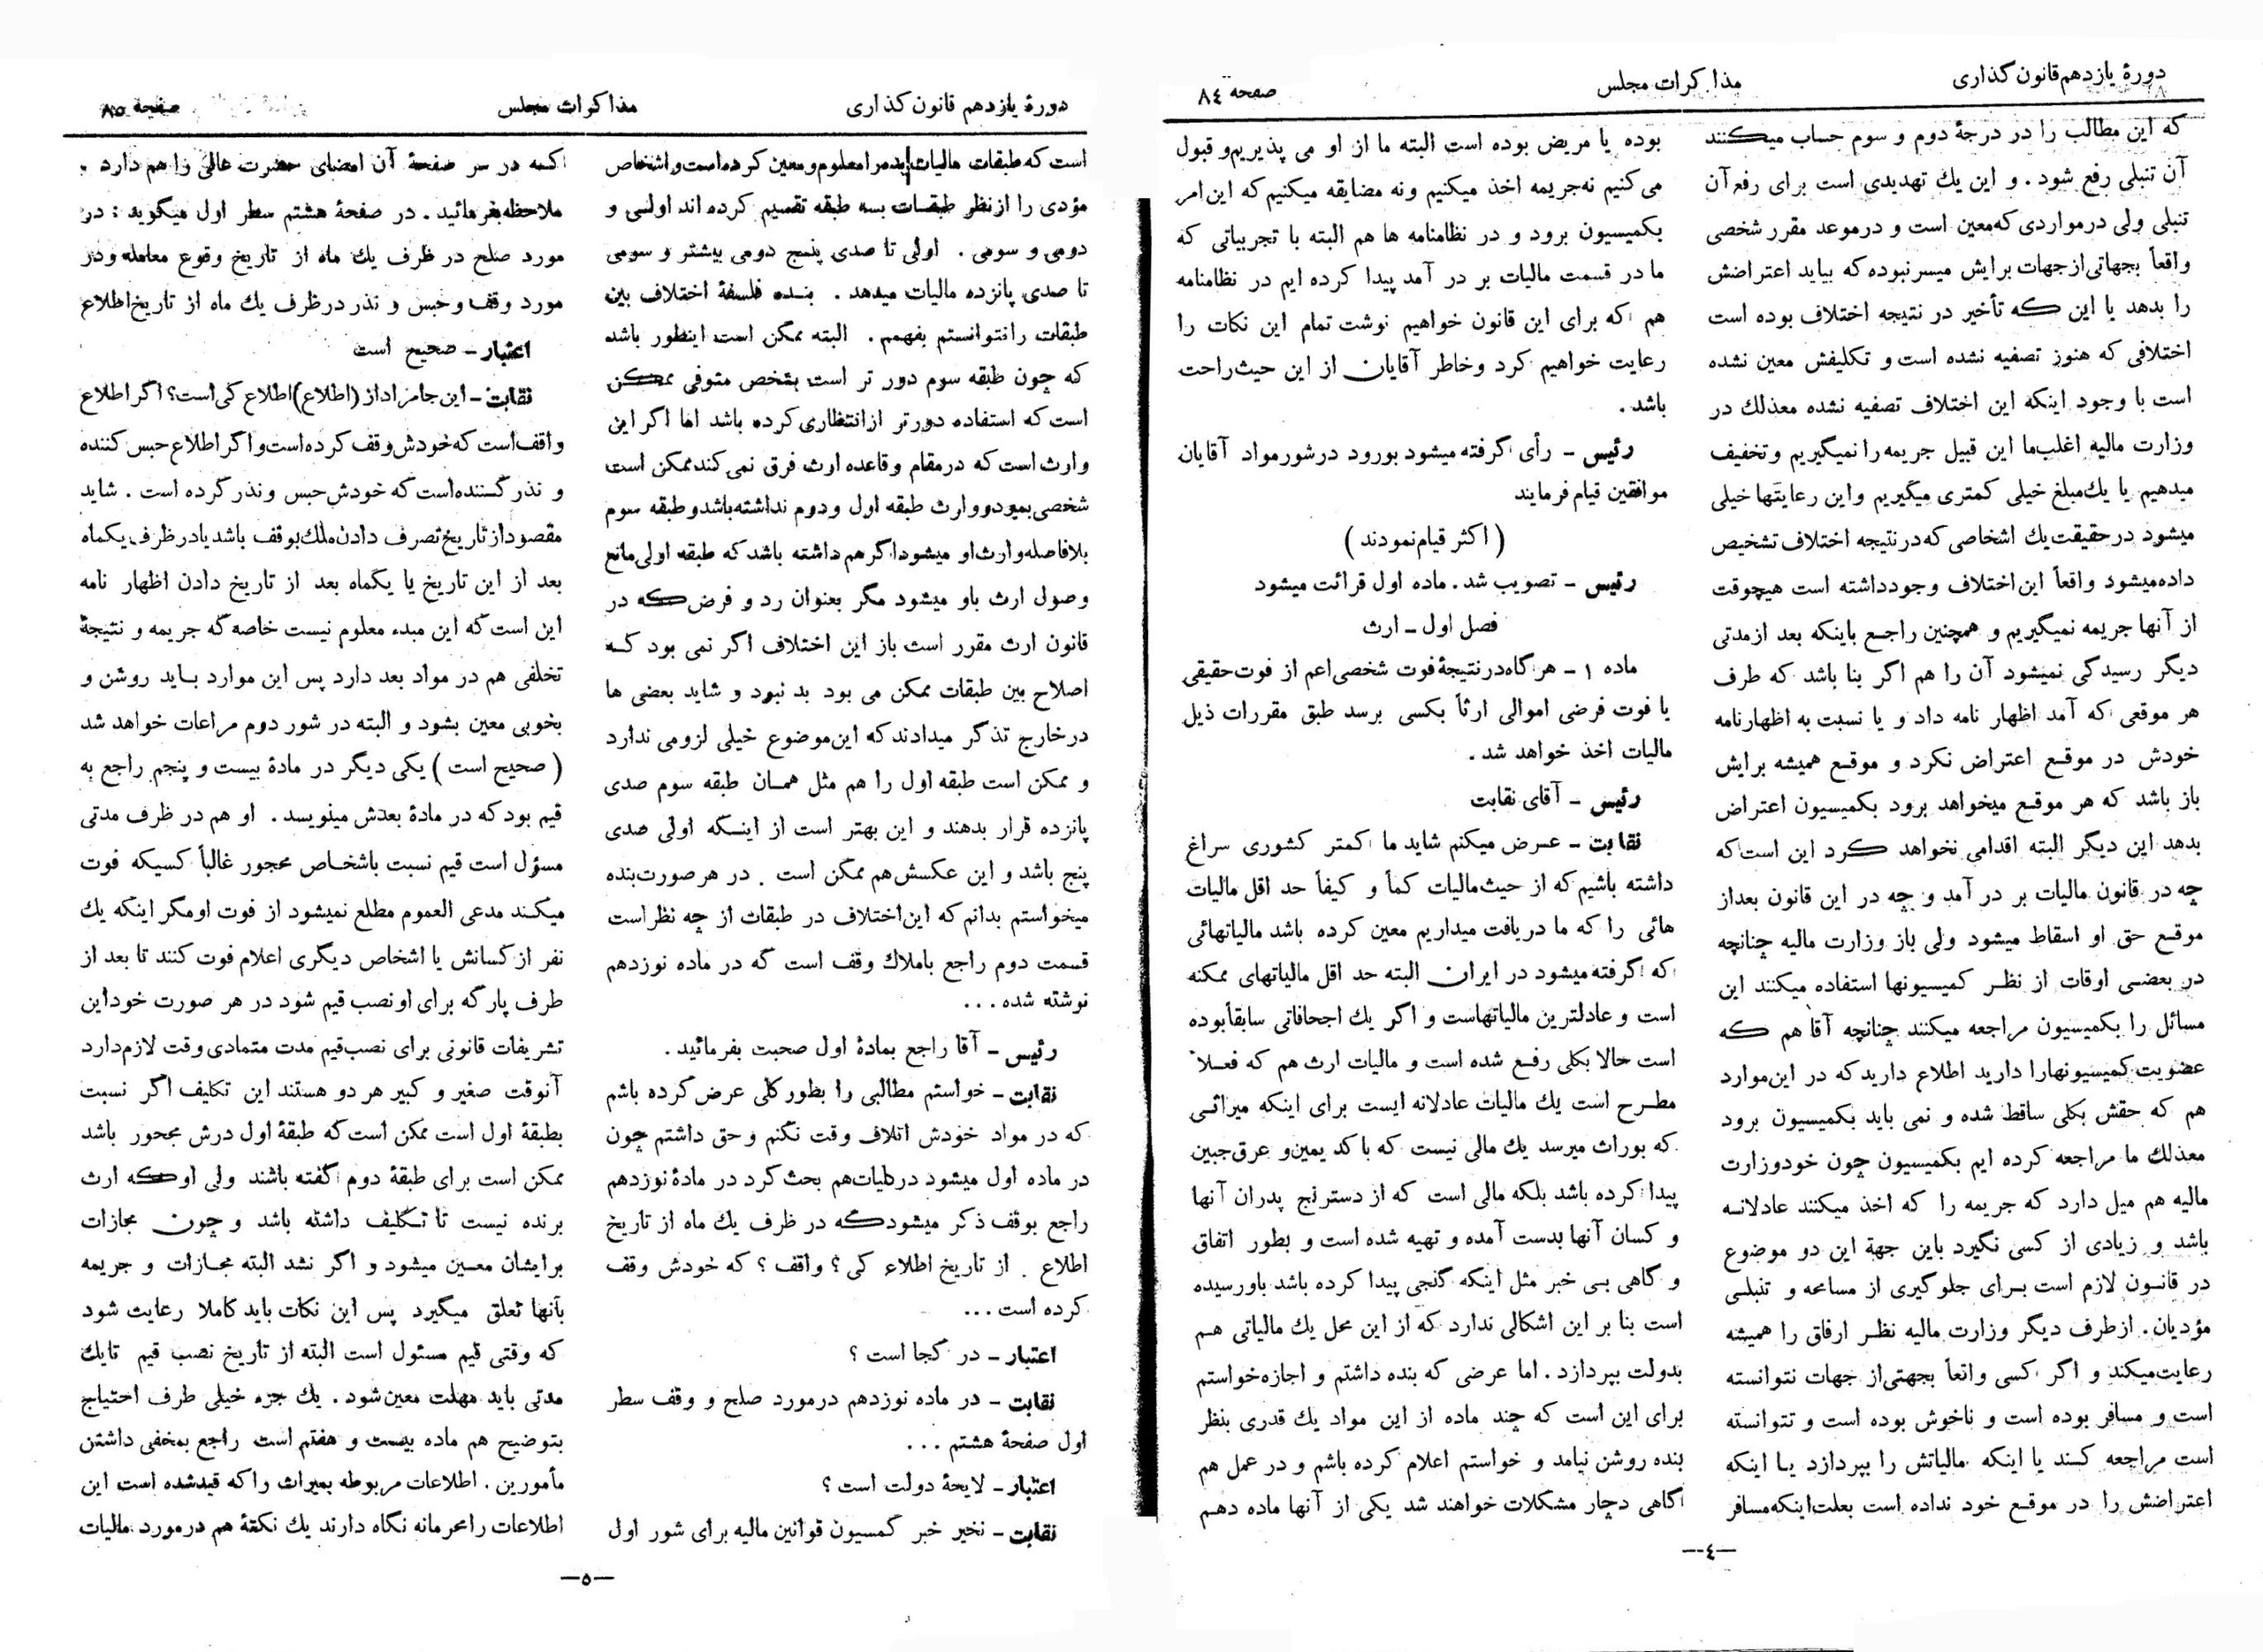 دورهٔ یازدهم قانون گذاری
مذاکرات مجلس
صفحه ۸٤
که این مطالب را در درجهٔ دوم و سوم حساب میکنند
آن تنبلی رفع شود . و این یك تهدیدی است برای رفع آن
تنبلی ولی در مواردی که معین است و در موعد مقرر شخصی
واقعاً بجهاتی از جهات برایش میسر نبوده که بیاید اعتراضش
را بدهد یا این که تأخیر در نتیجه اختلاف بوده است
اختلافی که هنوز تصفیه نشده است و تکلیفش معین نشده
است با وجود اینکه این اختلاف تصفیه نشده معذلك در
وزارت مالیه اغلب ما این قبیل جریمه را نمیگیریم و تخفیف
میدهیم یا یك مبلغ خیلی کمتری میگیریم و این رعایتها خیلی
میشود در حقیقت یك اشخاصی که در نتیجه اختلاف تشخیص
داده میشود واقعاً این اختلاف وجود داشته است هیچوقت
از آنها جریمه نمیگیریم و همچنین راجع باینکه بعد از مدتی
دیگر رسیدگی نمیشود آن را هم اگر بنا باشد که طرف
هر موقعی که آمد اظهار نامه داد و یا نسبت به اظهارنامه
خودش در موقع اعتراض نکرد و موقع همیشه برایش
باز باشد که هر موقع میخواهد برود بکمیسیون اعتراض
بدهد این دیگر البته اقدامی نخواهد کرد این است که
چه در قانون مالیات بر در آمد و چه در این قانون بعد از
موقع حق او اسقاط میشود ولی باز وزارت مالیه چنانچه
در بعضی اوقات از نظر کمیسیونها استفاده میکنند این
مسائل را بکمیسیون مراجعه میکنند چنانچه آقا هم که
عضویت کمیسیونها را دارید اطلاع دارید که در این موارد
هم که حقش بکلی ساقط شده و نمی باید بکمیسیون برود
معذلك ما مراجعه کرده ایم بکمیسیون چون خود وزارت
مالیه هم میل دارد که جریمه را که اخذ میکنند عادلانه
باشد و زیادی از کسی نگیرد باین جهة این دو موضوع
در قانون لازم است برای جلوگیری از مسامحه و تنبلی
مؤدیان . از طرف دیگر وزارت مالیه نظر ارفاق را همیشه
رعایت میکند و اگر کسی واقعاً بجهتی از جهات نتوانسته
است و مسافر بوده است و ناخوش بوده است و نتوانسته
است مراجعه کند یا اینکه مالیاتش را بپردازد یا اینکه
اعتراضش را در موقع خود نداده است بعلت اینکه مسافر
بوده یا مریض بوده است البته ما از او می پذیریم و قبول
می کنیم نه جریمه اخذ میکنیم ونه مضایقه میکنیم که این امر
بکمیسیون برود و در نظامنامه ها هم البته با تجربیاتی که
ما در قسمت مالیات بر در آمد پیدا کرده ایم در نظامنامه
هم که برای این قانون خواهیم نوشت تمام این نکات را
رعایت خواهیم کرد و خاطر آقایان از این حیث راحت
باشد .
رئیس - رأی گرفته میشود بورود در شور مواد آقایان
موافقین قیام فرمایند
( اکثر قیام نمودند )
رئیس - تصویب شد . ماده اول قرائت میشود
فصل اول - ارث
ماده ۱ - هر گاه در نتیجهٔ فوت شخصی اعم از فوت حقیقی
یا فوت فرضی اموالی ارثاً بکسی برسد طبق مقررات ذیل
مالیات اخذ خواهد شد .
رئیس - آقای نقابت
نقابت - عرض میکنم شاید ما کمتر کشوری سراغ
داشته باشیم که از حیث مالیات کماً و کیفاً حد اقل مالیات
هائی را که ما دریافت میداریم معین کرده باشد مالیاتهائی
که گرفته میشود در ایران البته حد اقل مالیاتهای ممکنه
است و عادلترین مالیاتهاست و اگر یك اجحافاتی سابقاً بوده
است حالا بکلی رفع شده است و مالیات ارث هم که فعلا
مطرح است یك مالیات عادلانه ایست برای اینکه میراثی
که بوراث میرسد یك مالی نیست که با کد یمین و عرق جبین
پیدا کرده باشد بلکه مالی است که از دسترنج پدران آنها
و کسان آنها بدست آمده و تهیه شده است و بطور اتفاق
و گاهی بی خبر مثل اینکه گنجی پیدا کرده باشد باو رسیده
است بنا بر این اشکالی ندارد که از این محل یك مالیاتی هم
بدولت بپردازد . اما عرضی که بنده داشتم و اجازه خواستم
برای این است که چند ماده از این مواد یك قدری بنظر
بنده روشن نیامد و خواستم اعلام کرده باشم و در عمل هم
گاهی دچار مشکلات خواهند شد یکی از آنها ماده دهم
—٤—
دورهٔ یازدهم قانون گذاری
مذاکرات مجلس
صفحه ۸۵
است که طبقات مالیات بده را معلوم و معین کرده است و اشخاص
مؤدی را از نظر طبقات بسه طبقه تقسیم کرده اند اولی و
دومی و سومی . اولی تا صدی پنج دومی بیشتر و سومی
تا صدی پانزده مالیات میدهد . بنده فلسفهٔ اختلاف بین
طبقات را نتوانستم بفهمم . البته ممکن است اینطور باشد
که چون طبقه سوم دور تر است بشخص متوفی ممکن
است که استفاده دورتر از انتظاری کرده باشد اما اگر این
وارث است که در مقام و قاعده ارث فرق نمی کند ممکن است
شخصی بمیرد و وارث طبقه اول و دوم نداشته باشد و طبقه سوم
بلافاصله وارث او میشود اگر هم داشته باشد که طبقه اولی مانع
وصول ارث باو میشود مگر بعنوان رد و فرض که در
قانون ارث مقرر است باز این اختلاف اگر نمی بود که
اصلاح بین طبقات ممکن می بود بد نبود و شاید بعضی ها
در خارج تذکر میدادند که این موضوع خیلی لزومی ندارد
و ممکن است طبقه اول را هم مثل همان طبقه سوم صدی
پانزده قرار بدهند و این بهتر است از اینکه اولی صدی
پنج باشد و این عکسش هم ممکن است . در هر صورت بنده
میخواستم بدانم که این اختلاف در طبقات از چه نظر است
قسمت دوم راجع باملاك وقف است که در ماده نوزدهم
نوشته شده . . .
رئیس - آقا راجع بمادهٔ اول صحبت بفرمائید .
نقابت - خواستم مطالبی را بطور کلی عرض کرده باشم
که در مواد خودش اتلاف وقت نکنم و حق داشتم چون
در ماده اول میشود در کلیات هم بحث کرد در مادهٔ نوزدهم
راجع بوقف ذکر میشود که در ظرف یك ماه از تاریخ
اطلاع . از تاریخ اطلاع کی ؟ واقف ؟ که خودش وقف
کرده است . . .
اعتبار - در کجا است ؟
نقابت - در ماده نوزدهم در مورد صلح و وقف سطر
اول صفحهٔ هشتم . . .
اعتبار - لایحهٔ دولت است ؟
نقابت - نخیر خبر کمسیون قوانین مالیه برای شور اول
که در سر صفحهٔ آن امضای حضرت عالی را هم دارد .
ملاحظه بفرمائید . در صفحهٔ هشتم سطر اول میگوید : در
مورد صلح در ظرف یك ماه از تاریخ وقوع معامله و در
مورد وقف و حبس و نذر در ظرف یك ماه از تاریخ اطلاع
اعتبار - صحیح است
نقابت - این جا مراد از (اطلاع) اطلاع کی است؟ اگر اطلاع
واقف است که خودش وقف کرده است و اگر اطلاع حبس کننده
و نذر کننده است که خودش حبس و نذر کرده است . شاید
مقصود از تاریخ تصرف دادن ملك بوقف باشد یا در ظرف یکماه
بعد از این تاریخ یا یکماه بعد از تاریخ دادن اظهار نامه
این است که این مبدء معلوم نیست خاصه که جریمه و نتیجهٔ
تخلفی هم در مواد بعد دارد پس این موارد باید روشن و
بخوبی معین بشود و البته در شور دوم مراعات خواهد شد
( صحیح است ) یکی دیگر در مادهٔ بیست و پنجم راجع به
قیم بود که در مادهٔ بعدش مینویسد . او هم در ظرف مدتی
مسؤل است قیم نسبت باشخاص محجور غالباً کسیکه فوت
میکند مدعی العموم مطلع نمیشود از فوت او مگر اینکه یك
نفر از کسانش یا اشخاص دیگری اعلام فوت کنند تا بعد از
طرف پارکه برای او نصب قیم شود در هر صورت خود این
تشریفات قانونی برای نصب قیم مدت متمادی وقت لازم دارد
آنوقت صغیر و کبیر هر دو هستند این تکلیف اگر نسبت
بطبقهٔ اول است ممکن است که طبقهٔ اول درش محجور باشد
ممکن است برای طبقهٔ دوم گفته باشند ولی او که ارث
برنده نیست تا تکلیف داشته باشد و چون مجازات
برایشان معین میشود و اگر نشد البته مجازات و جریمه
بآنها تعلق میگیرد پس این نکات باید کاملا رعایت شود
که وقتی قیم مسئول است البته از تاریخ نصب قیم تا یك
مدتی باید مهلت معین شود . یك جزء خیلی طرف احتیاج
بتوضیح هم ماده بیست و هفتم است راجع بمخفی داشتن
مأمورین . اطلاعات مربوطه بمیراث را که قید شده است این
اطلاعات را محرمانه نگاه دارند یك نکتهٔ هم در مورد مالیات
—٥—